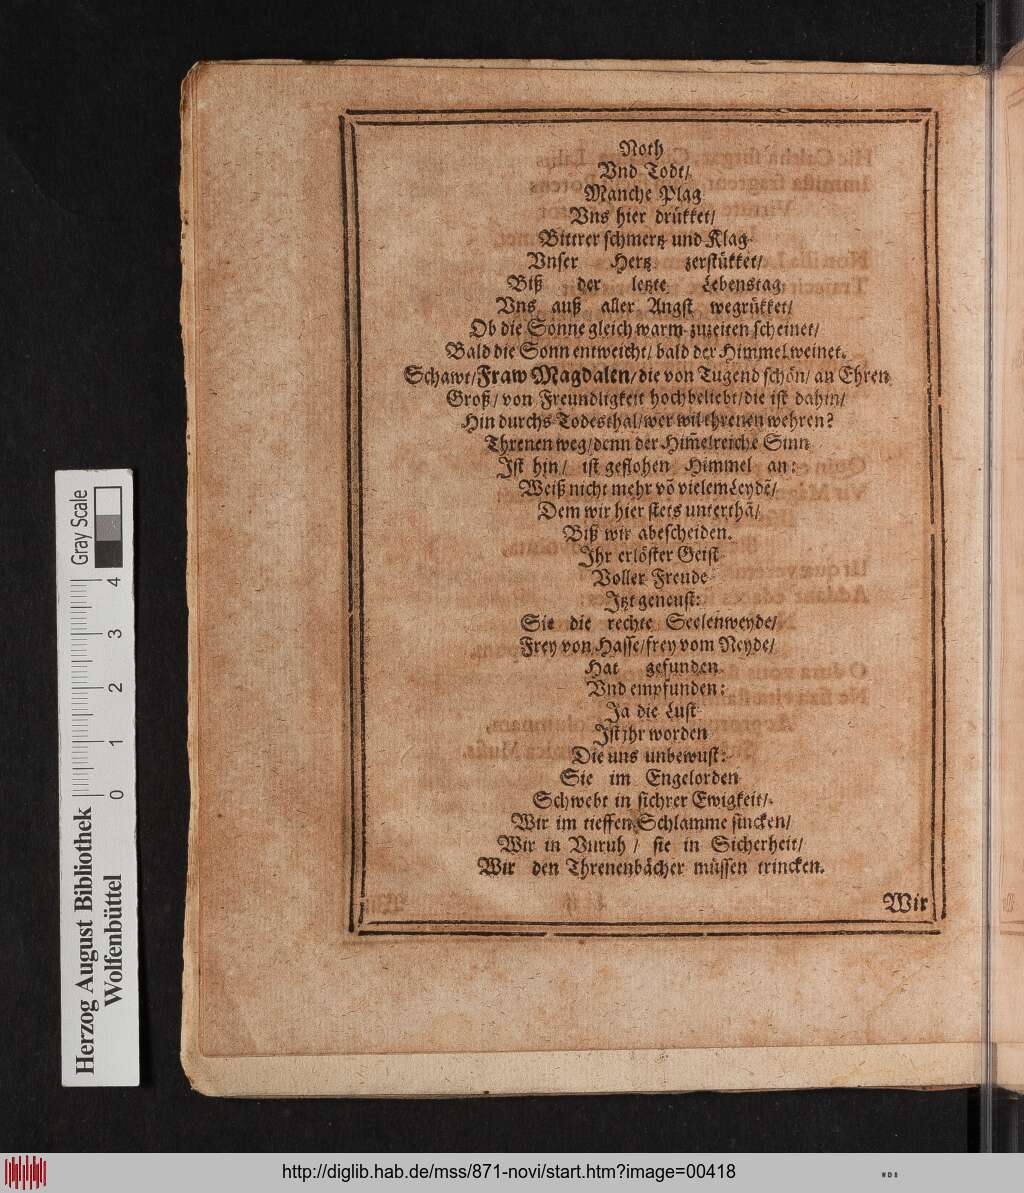 Noth
Vnd Todt/
Manche Plag
Vns hier drükket/
Bittrer schmertz und Klag
Vnser Hertz zerstükket/
Biß der letzte Lebenstag
Vns auß aller Angst wegrükket/
Ob die Sonne gleich warm zuzeiten scheinet/
Bald die Sonn entweicht/ bald der Himmel weinet.
Schawt/ Fraw Magdalen/ die von Tugend schön/ an Ehren
Groß/ von Freundligkeit hochbeliebt/ die ist dahin/
Hin durchs Todesthal/ wer wil threnen wehren?
Threnen weg/ denn der Him̃elreiche Sinn
Ist hin/ ist geflohen Himmel an:
Weiß nicht mehr võ vielem Leydẽ/
Dem wir hier stets unterthã/
Biß wir abescheiden.
Ihr erlöster Geist
Voller Freude
Itzt geneust:
Sie die rechte Seelenweyde/
Frey von Hasse/ frey vom Neyde/
Hat gefunden
Vnd empfunden:
Ja die Lust
Ist jhr worden
Die uns unbewust:
Sie im Engelorden
Schwebt in sichrer Ewigkeit/
Wir im tieffen Schlamme sincken/
Wir in Vnruh/ sie in Sicherheit/
Wir den Threnenbächer müssen trincken.
Wir
Herzog August Bibliothek
Wolfenbüttel
Gray Scale
0 1 2 3 4
http://diglib.hab.de/mss/871-novi/start.htm?image=00418